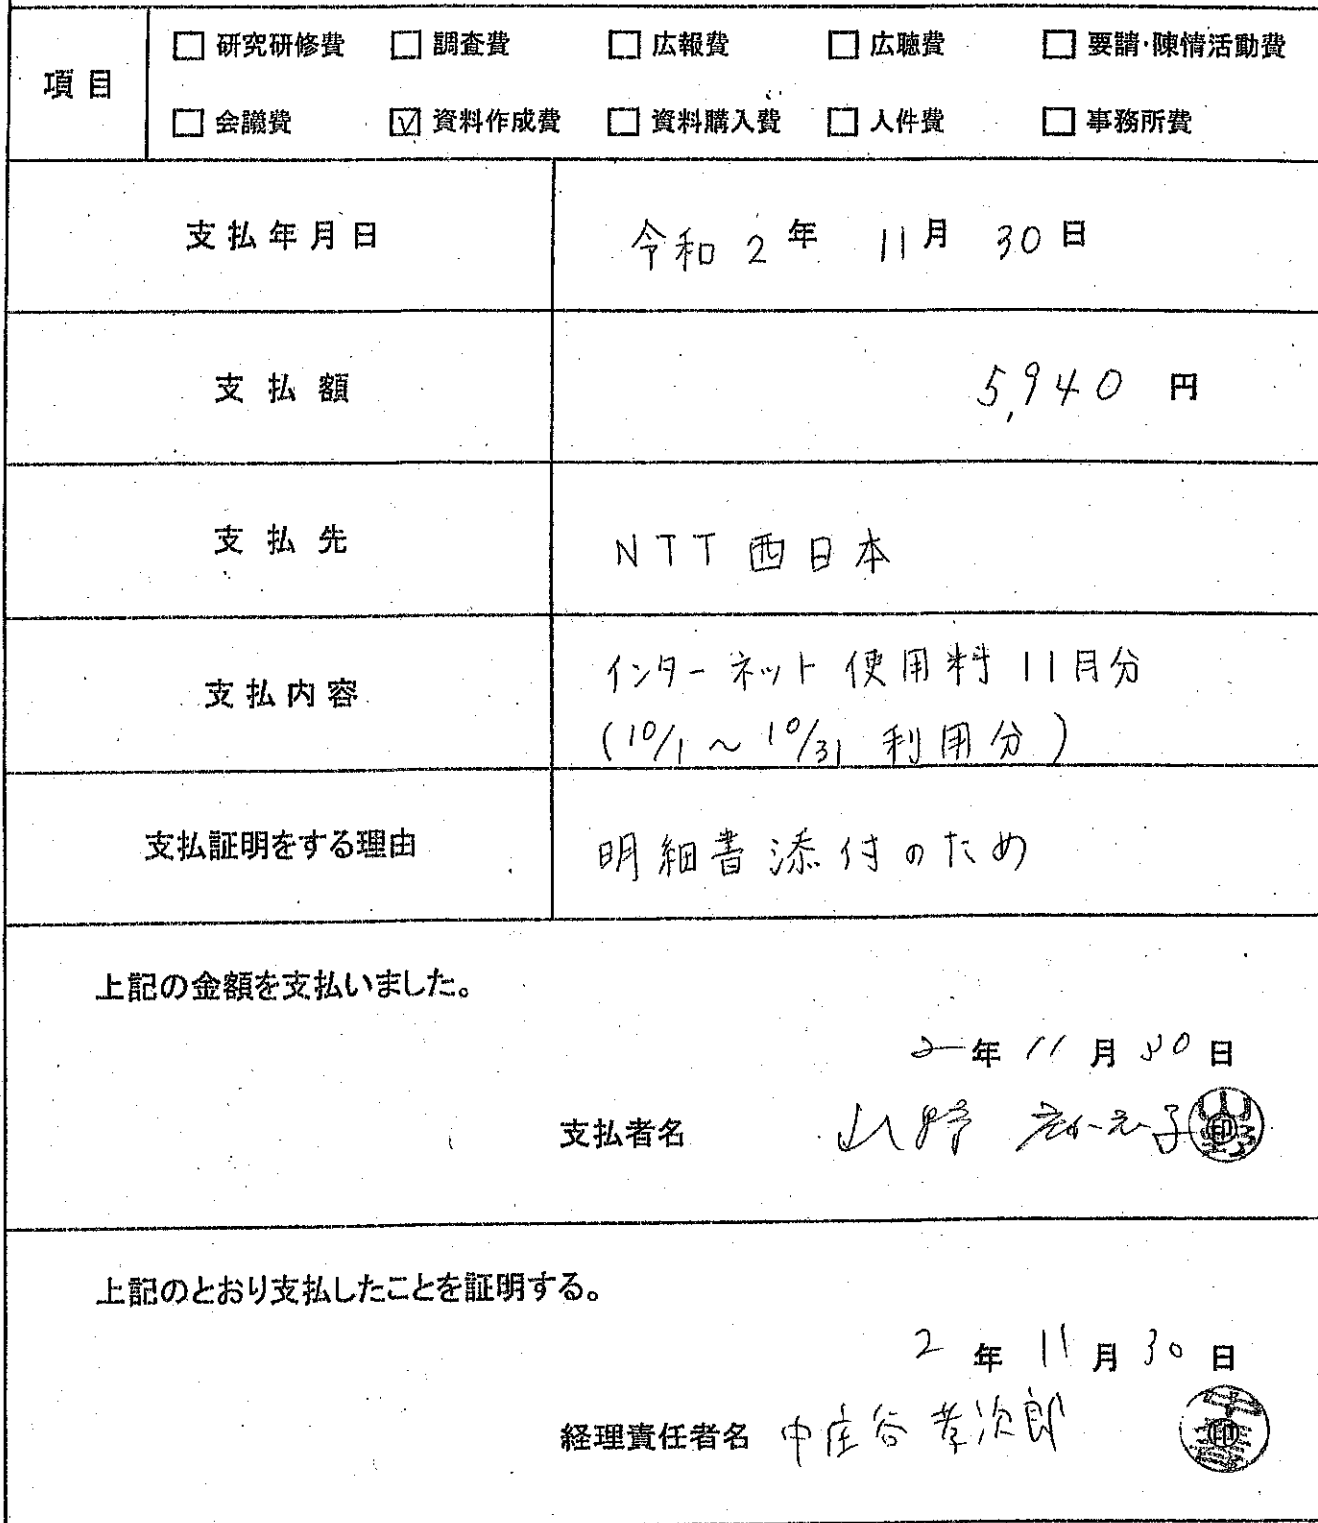 項目
□ 研究研修費 □ 調査費 □ 広報費 □ 広聴費 □ 要請・陳情活動費
□ 会議費 ☑ 資料作成費 □ 資料購入費 □ 人件費 □ 事務所費
支払年月日 令和 2 年 11 月 30 日
支払額 5,940 円
支払先 NTT西日本
支払内容 インターネット使用料 11月分
(10/1 ~ 10/31 利用分)
支払証明をする理由 明細書添付のため
上記の金額を支払いました。
2 年 11 月 30 日
支払者名 山野 子 山野 印
上記のとおり支払したことを証明する。
2 年 11 月 30 日
経理責任者名 中庄谷 孝次郎 印